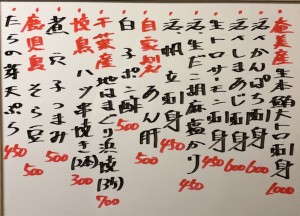 奄美産 生本鮪大トロ刺身 1000
活〆かんぱち刺身 600
活〆しまあじ刺身 600
生トロサーモン刺身 450
生だこ胡麻塩かり 450
活帆立刺身 450
自家製 あん肝 500
白子ポン酢 500
千葉産 地はまぐり浜焼き(3ケ) 700
焼鳥 ハツ串焼き(2本) 300
煮穴子つまみ 500
鹿児島 そら豆 500
たらの芽天ぷら 450